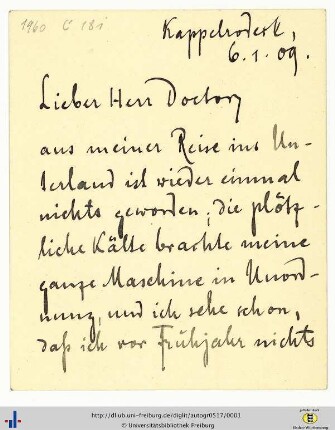 1960 C 181
Kappelrodeck,
6.1.09.
Lieber Herr Doctor,
aus meiner Reise ins Un-
terland ist wieder einmal
nichts geworden; die plötz-
liche Kälte brachte meine
ganze Maschine in Unord-
nung, und ich sehe schon,
daß ich vor Frühjahr nichts
http://dl.ub.uni-freiburg.de/diglit/autogr0517/0001
© Universitätsbibliothek Freiburg